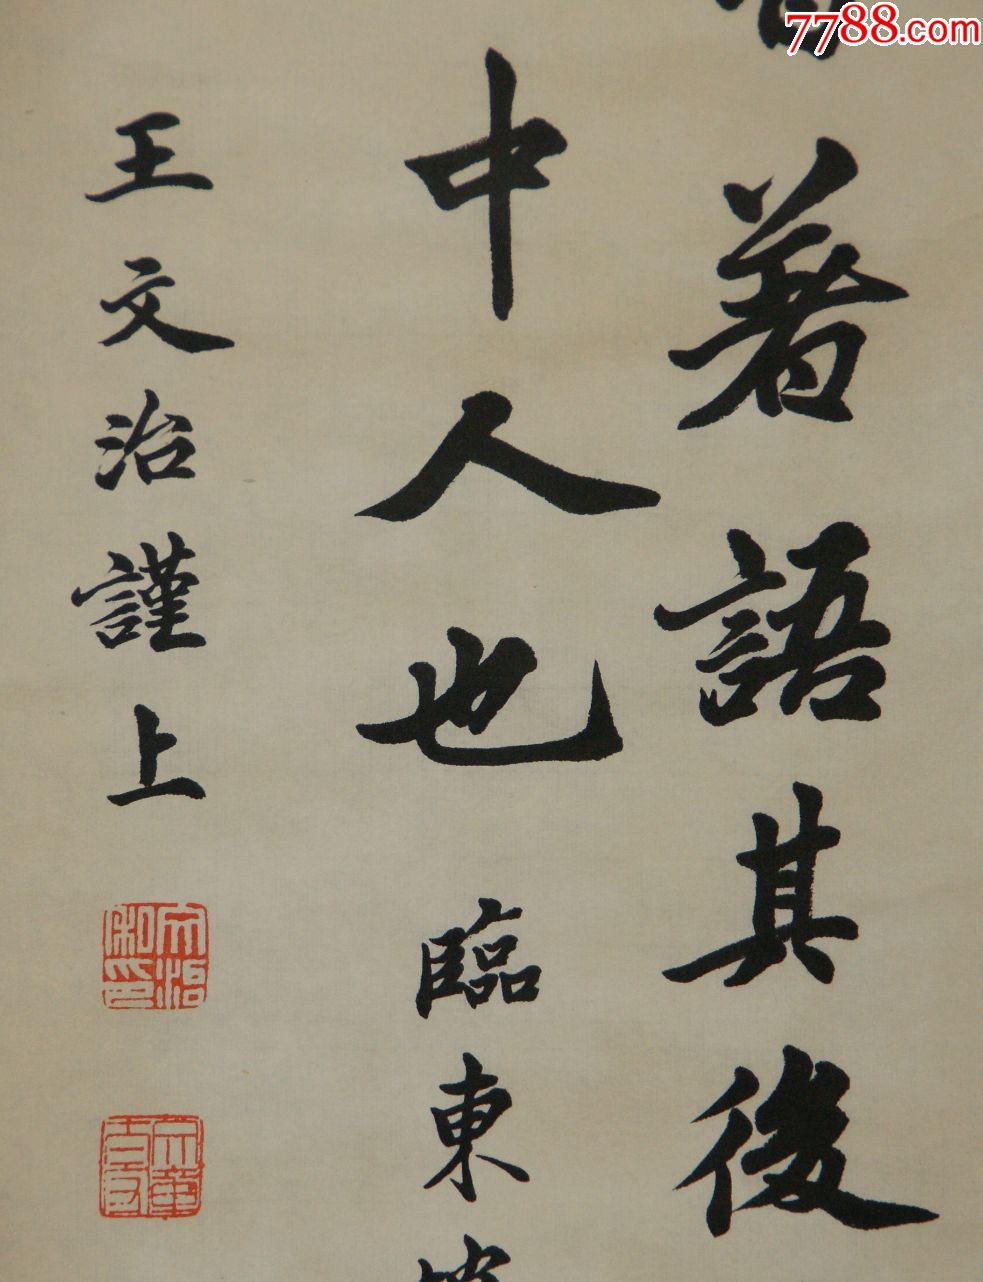 7788.com
著語其後
中人也 臨東坡
王文治謹上
文治私印